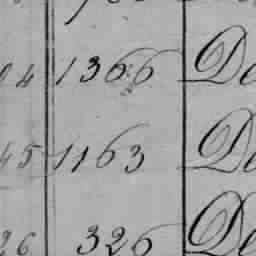 04 1366 De
45 1163 De
26 326 De